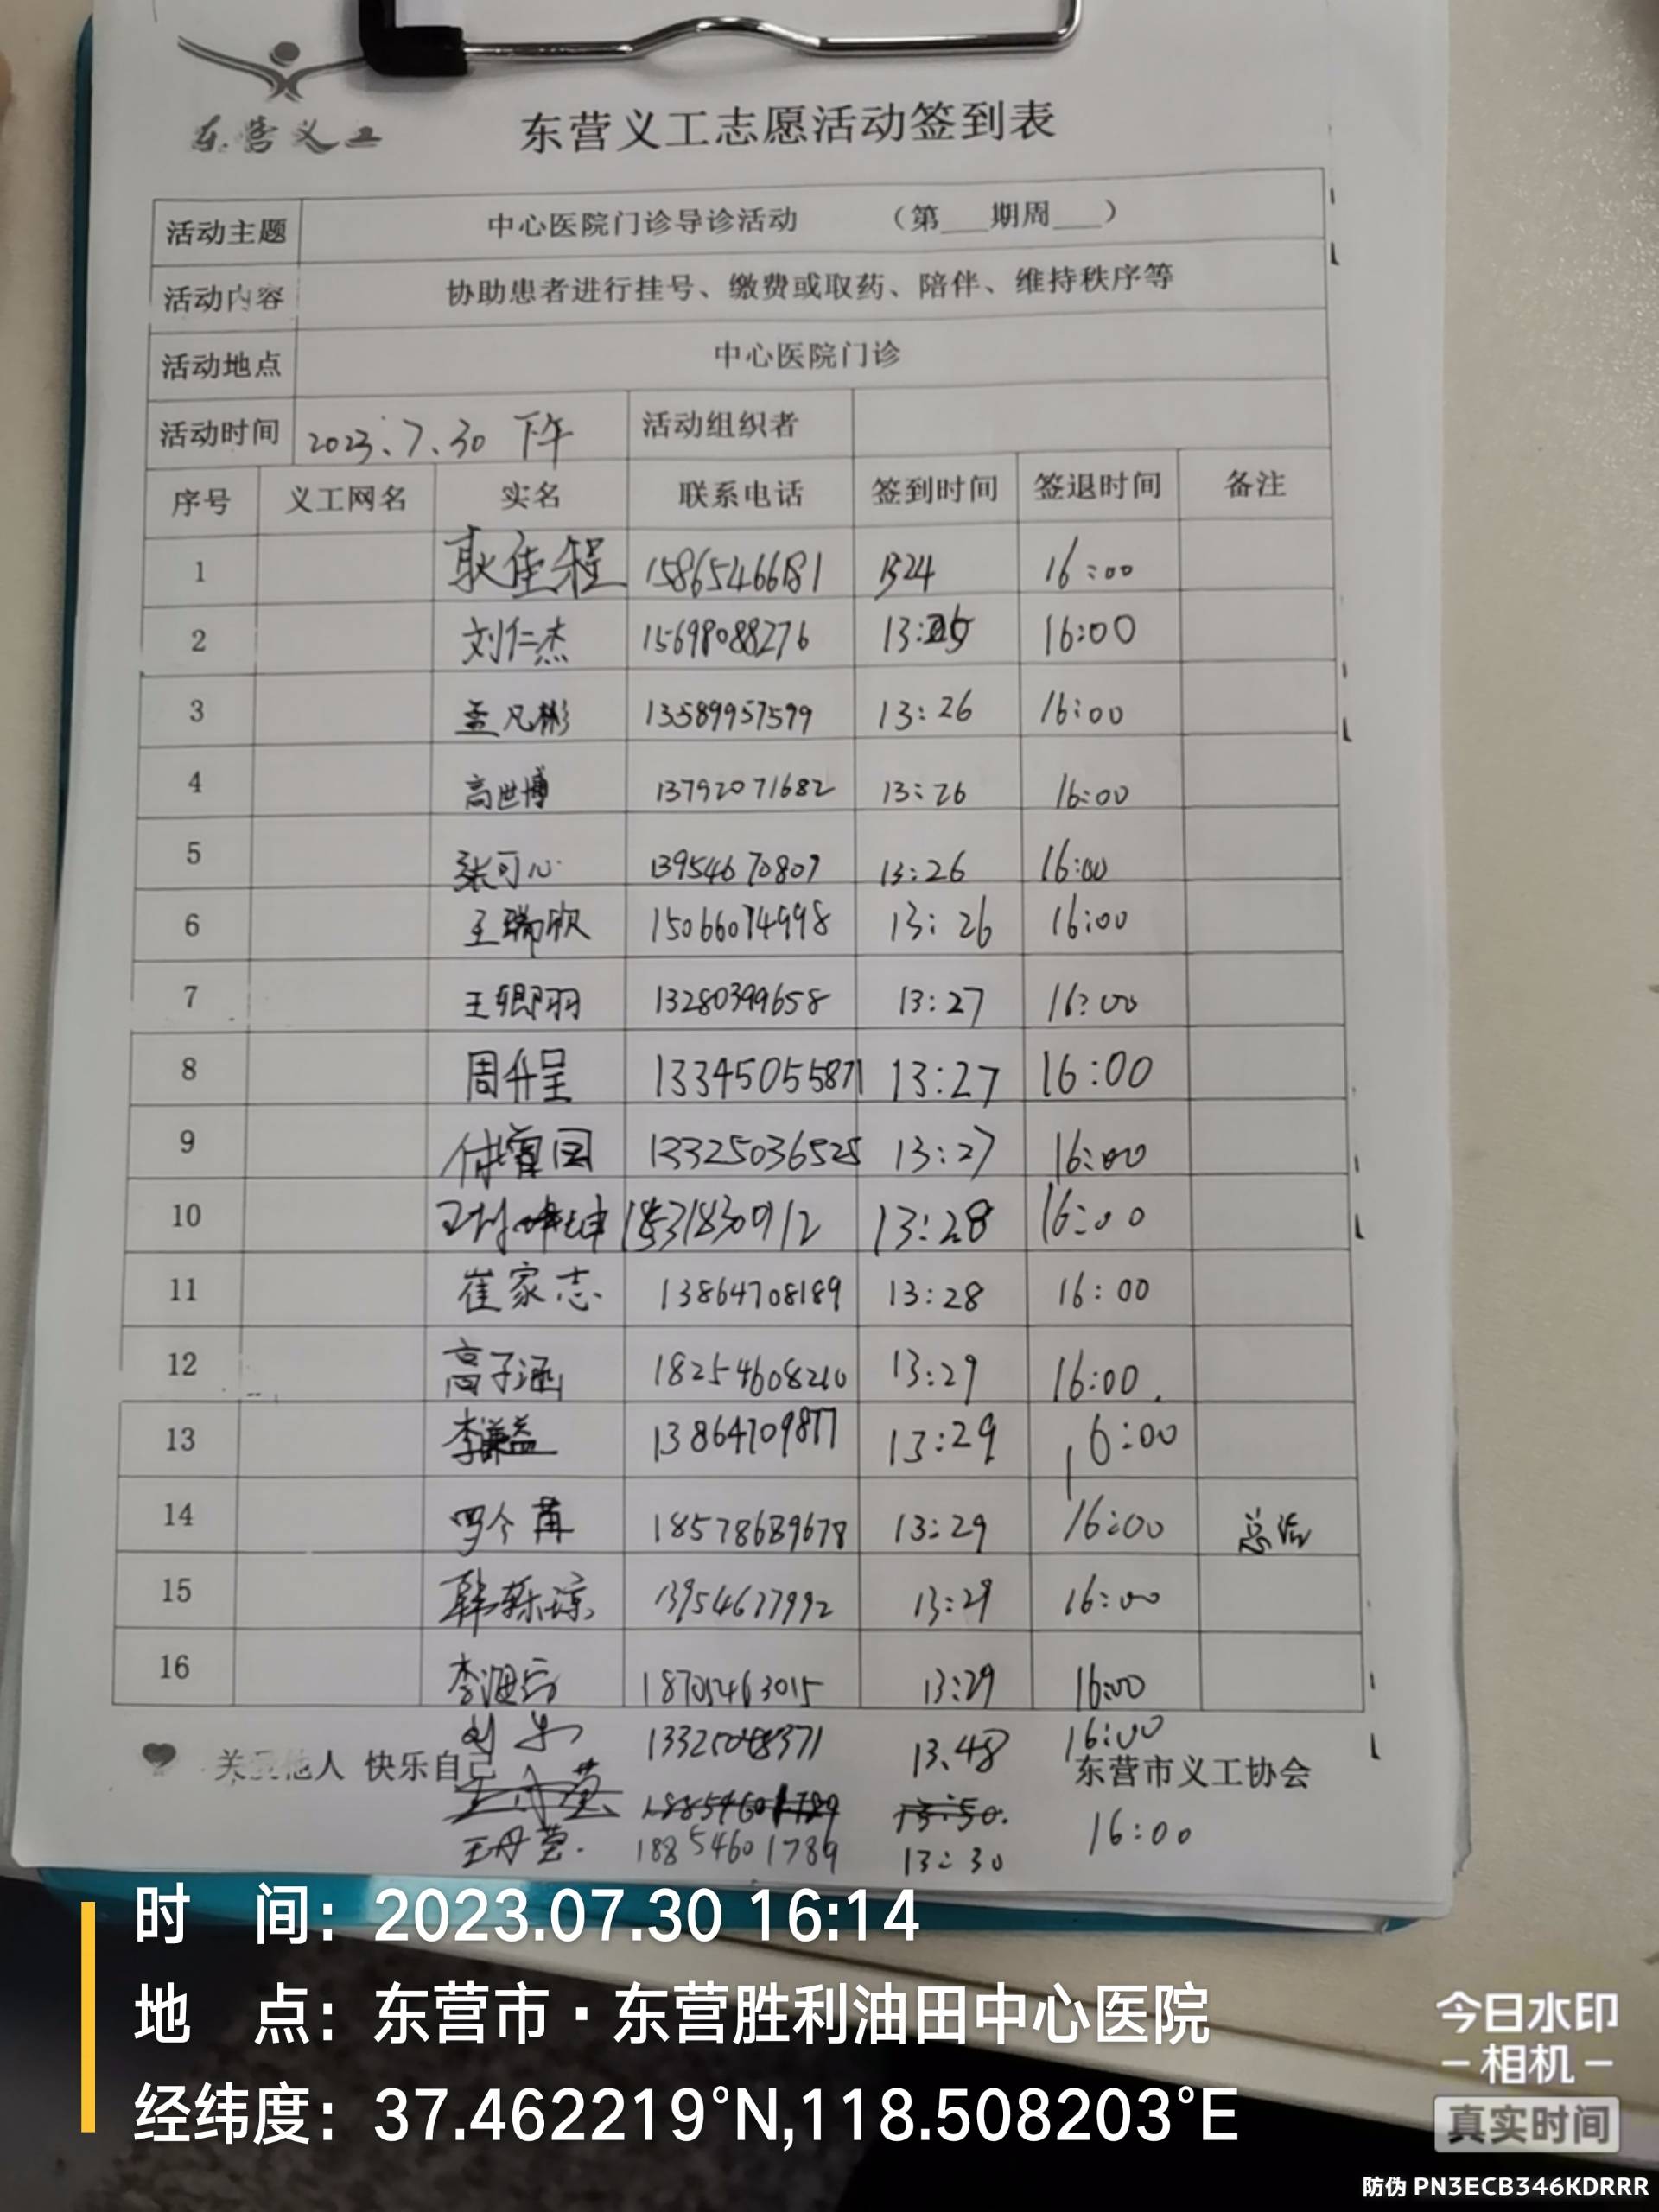 东营义工
东营义工志愿活动签到表
活动主题 中心医院门诊导诊活动 （第___期周___）
活动内容 协助患者进行挂号、缴费或取药、陪伴、维持秩序等
活动地点 中心医院门诊
活动时间 2023.7.30 下午 活动组织者
序号 义工网名 实名 联系电话 签到时间 签退时间 备注
1 耿佳程 15865466181 1324 16:00
2 刘仁杰 15698088276 13:25 16:00
3 孟凡彬 13589957599 13:26 16:00
4 高世博 13792071682 13:26 16:00
5 张可心 13954670807 13:26 16:00
6 王瑞欣 15066074998 13:26 16:00
7 王卿羽 13280399658 13:27 16:00
8 周仟呈 13345055871 13:27 16:00
9 13325036525 13:27 16:00
10 18531830912 13:28 16:00
11 崔家志 13864708189 13:28 16:00
12 高子涵 18254608210 13:29 16:00.
13 李谦益 13864709877 13:29 16:00
14 罗今苒 18578689678 13:29 16:00
15 13954677992 13:29 16:00
16 18705463015 13:29 16:00
13325048371 13.48 16:00
关爱他人 快乐自己 东营市义工协会
18854601789 13:50.
王丹莹. 18854601789 13:30 16:00
时 间：2023.07.30 16:14
地 点：东营市·东营胜利油田中心医院
经纬度：37.462219°N,118.508203°E
今日水印
相机
真实时间
防伪 PN3ECB346KDRRR